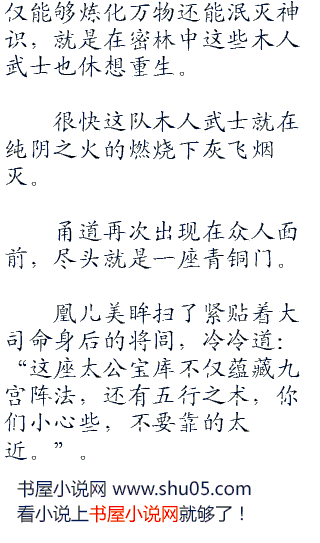 仅能够炼化万物还能泯灭神
识，就是在密林中这些木人
武士也休想重生。
很快这队木人武士就在
纯阴之火的燃烧下灰飞烟
灭。
甬道再次出现在众人面
前，尽头就是一座青铜门。
凰儿美眸扫了紧贴着大
司命身后的将闾，冷冷道：
“这座太公宝库不仅蕴藏九
宫阵法，还有五行之术，你
们小心些，不要靠的太
近。”。
书屋小说网 www.shu05.com
看小说上书屋小说网就够了！